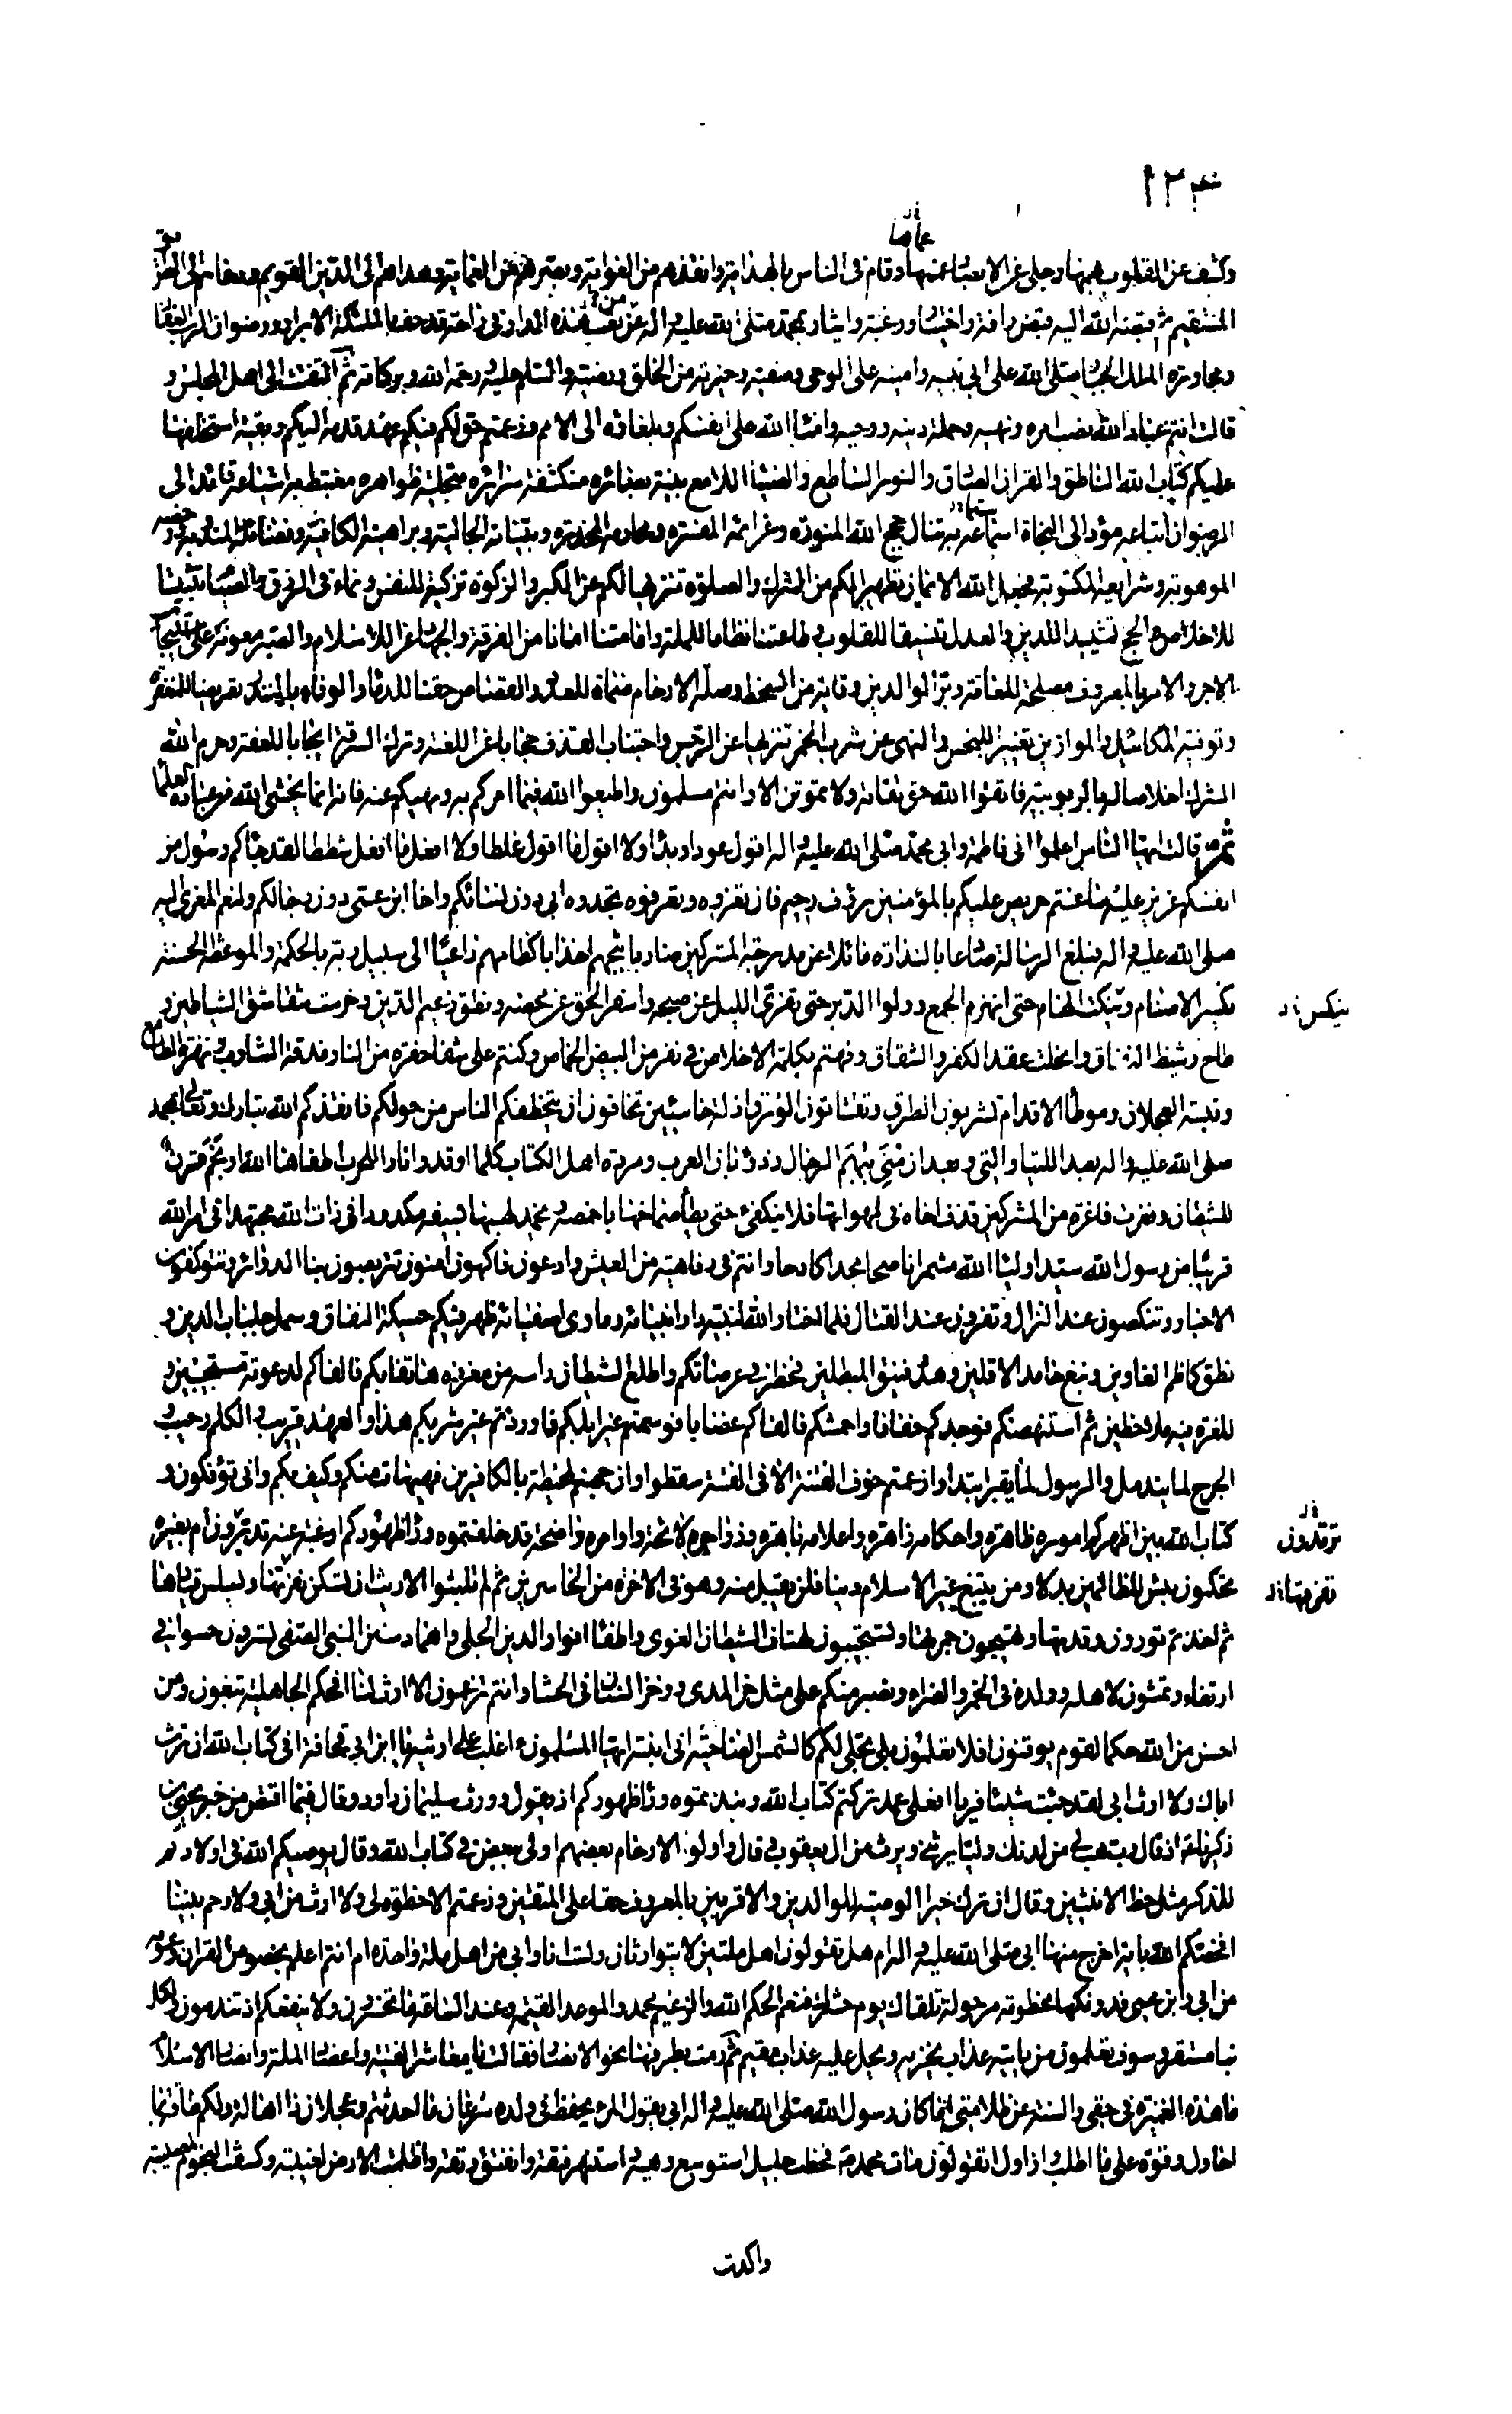 ١٢٣
عماها
وكشف عن القلوب بهمها وجلى عن الابصار غمها وقام فى الناس بالهداية وانقذهم من الغواية وبصرهم من العماية وهداهم الى الدين القويم ودعاهم الى الطريق
المستقيم ثم قبضه الله اليه قبض رافة واختيار ورغبة وايثار بمحمد صلى الله عليه واله عن تعب هذه الدار فى راحة قد حف بالملئكة الابرار ورضوان الرب الغفار
ومجاورة الملك الجبار صلى الله على ابى نبيه وامينه على الوحى وصفيه وخيرته من الخلق ورضيه والسلم عليه ورحمة الله وبركاته ثم التفتت الى اهل المجلس و
قالت انتم عباد الله نصب امره ونهيه وحملة دينه ووحيه وامناء الله على انفسكم وبلغاؤه الى الامم وزعمتم حق لكم فيكم عهد قدمه اليكم وبقية استخلفها
عليكم كتاب الله الناطق والقران الصادق والنور الساطع والضياء اللامع بينة بصائره منكشفة سرائره متجلية ظواهره مغتبط به اشياعه قائد الى
الرضوان اتباعه مؤد الى النجاة استماعه به تنال حجج الله المنورة وعزائمه المفسرة ومحارمه المحذرة وبيناته الجالية وبراهينه الكافية وفضائله المندوبة ورخصه
الموهوبة وشرايعه المكتوبة فجعل الله الايمان تطهيرا لكم من الشرك والصلوة تنزيها لكم عن الكبر والزكوة تزكية للنفس ونماء فى الرزق والصيام تثبيتا
للاخلاص والحج تشييدا للدين والعدل تنسيقا للقلوب وطاعتنا نظاما للملة وامامتنا امانا من الفرقة والجهاد عز للاسلام والصبر معونة على استيجاب
الاجر والامر بالمعروف مصلحة للعامة وبر الوالدين وقاية من السخط وصلة الارحام منماة للعدد والقصاص حقنا للدماء والوفاء بالنذر تعريضا للمغفرة
وتوفية المكائيل والموازين تغييرا للبخس والنهى عن شرب الخمر تنزيها عن الرجس واجتناب القذف حجابا عن اللعنة وترك السرقة ايجابا للعفة وحرم الله
الشرك اخلاصا له بالربوبية فاتقوا الله حق تقاته ولا تموتن الا وانتم مسلمون واطيعوا الله فيما امركم به ونهيكم عنه فانه انما يخشى الله من عباده العلماء
ثم قالت ايها الناس اعلموا انى فاطمة وابى محمد صلى الله عليه واله اقول عودا وبدأ ولا اقول ما اقول غلطا ولا افعل ما افعل شططا لقد جاءكم رسول من
انفسكم عزيز عليه ما عنتم حريص عليكم بالمؤمنين رؤف رحيم فان تعزوه وتعرفوه تجدوه ابى دون نسائكم واخا ابن عمى دون رجالكم ولنعم المعزى اليه
صلى الله عليه واله فبلغ الرسالة صادعا بالنذارة مائلا عن مدرجة المشركين ضاربا ثبجهم اخذا باكظامهم داعيا الى سبيل ربه بالحكمة والموعظة الحسنة
يكسر الاصنام وينكث الهام حتى انهزم الجمع وولوا الدبر حتى تفرى الليل عن صبحه واسفر الحق عن محضه ونطق زعيم الدين وخرست شقاشق الشياطين و
طاح وشيظ النفاق وانحلت عقد الكفر والشقاق وفهتم بكلمة الاخلاص فى نفر من البيض الخماص وكنتم على شفا حفرة من النار مذقة الشارب ونهزة الطامع
وقبسة العجلان وموطأ الاقدام تشربون الطرق وتقتاتون الورق اذلة خاسئين تخافون ان يتخطفكم الناس من حولكم فانقذكم الله تبارك وتعالى بمحمد
صلى الله عليه واله بعد اللتيا والتى وبعد ان منى ببهم الرجال وذؤبان العرب ومردة اهل الكتاب كلما اوقدوا نارا للحرب اطفاها الله او نجم قرن
للشيطان وفغرت فاغرة من المشركين قذف اخاه فى لهواتها فلا ينكفئ حتى يطأ صماخها باخمصه ويخمد لهبها بسيفه مكدودا فى ذات الله مجتهدا فى امر الله
قريبا من رسول الله سيد اولياء الله مشمرا ناصحا مجدا كادحا وانتم فى رفاهية من العيش وادعون فاكهون امنون تتربصون بنا الدوائر وتتوكفون
الاخبار وتنكصون عند النزال وتفرون عند القتال فلما اختار الله لنبيه دار انبيائه وماوى اصفيائه ظهر فيكم حسيكة النفاق وسمل جلباب الدين و
نطق كاظم الغاوين ونبغ خامل الاقلين وهدر فنيق المبطلين فخطر فى عرصاتكم واطلع الشيطان راسه من مغرزه هاتفا بكم فالفاكم لدعوته مستجيبين و
للغرة فيه ملاحظين ثم استنهضكم فوجدكم خفافا واحمشكم فالفاكم غضابا فوسمتم غير ابلكم واوردتم غير شربكم هذا والعهد قريب والكلم رحيب و
الجرح لما يندمل والرسول لما يقبر ابتدارا زعمتم خوف الفتنة الا فى الفتنة سقطوا وان جهنم لمحيطة بالكافرين فهيهات منكم وكيف بكم وانى تؤفكون و
كتاب الله بين اظهركم اموره ظاهرة واحكامه زاهرة واعلامه باهرة وزواجره لائحة واوامره واضحة قد خلفتموه وراء ظهوركم ارغبة عنه تدبرون ام بغيره
تحكمون بئس للظالمين بدلا ومن يبتغ غير الاسلام دينا فلن يقبل منه وهو فى الاخرة من الخاسرين ثم لم تلبثوا الا ريث ان تسكن نفرتها ويسلس قيادها
ثم اخذتم تورون وقدتها وتهيجون جمرتها وتستجيبون لهتاف الشيطان الغوى واطفاء انوار الدين الجلى واهماد سنن النبى الصفى تسرون حسوا فى
ارتغاء وتمشون لاهله وولده فى الخمر والضراء ونصبر منكم على مثل حز المدى ووخز السنان فى الحشا وانتم تزعمون الا ارث لنا افحكم الجاهلية تبغون ومن
احسن من الله حكما لقوم يوقنون افلا تعلمون بلى تجلى لكم كالشمس الضاحية انى ابنته ايها المسلمون ءاغلب على ارثيه يا ابن ابى قحافة افى كتاب الله ان ترث
اباك ولا ارث ابى لقد جئت شيئا فريا افعلى عمد تركتم كتاب الله ونبذتموه وراء ظهوركم اذ يقول وورث سليمان داود وقال فيما اقتص من خبر يحيى بن
زكريا ع اذ قال رب هب لى من لدنك وليا يرثنى ويرث من ال يعقوب وقال واولوا الارحام بعضهم اولى ببعض فى كتاب الله وقال يوصيكم الله فى اولادكم
للذكر مثل حظ الانثيين وقال ان ترك خيرا الوصية للوالدين والاقربين بالمعروف حقا على المتقين وزعمتم الا حظوة لى ولا ارث من ابى ولا رحم بيننا
افخصكم الله باية اخرج منها ابى صلى الله عليه واله ام هل تقولون اهل ملتين لا يتوارثان ولست انا وابى من اهل ملة واحدة ام انتم اعلم بخصوص القران وعمومه
من ابى وابن عمى فدونكها مخطومة مرحولة تلقاك يوم حشرك فنعم الحكم الله والزعيم محمد والموعد القيمة وعند الساعة ما تخسرون ولا ينفعكم اذ تندمون ولكل
نبا مستقر وسوف تعلمون من ياتيه عذاب يخزيه ويحل عليه عذاب مقيم ثم رمت بطرفها نحو الانصار فقالت يا معاشر الفتية واعضاد الملة وانصار الاسلام
ما هذه الغميزة فى حقى والسنة عن ظلامتى اما كان رسول الله صلى الله عليه واله ابى يقول المرء يحفظ فى ولده سرعان ما احدثتم وعجلان ذا اهالة ولكم طاقة بما
احاول وقوة على ما اطلب وازاول اتقولون مات محمد ص فخطب جليل استوسع وهيه واستنهر فتقه وانفتق رتقه واظلمت الارض لغيبته وكسفت النجوم لمصيبته
ينكس خ د
ترتدون
نفرتها خ د
واكدت